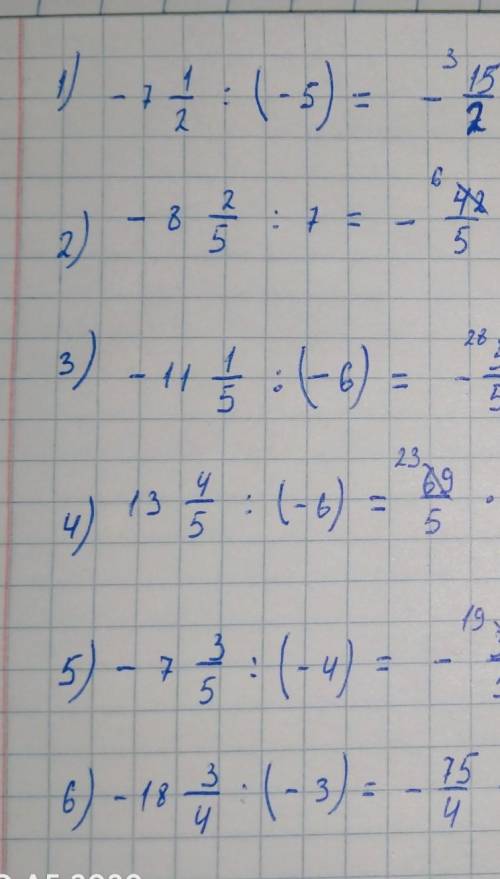 1) -7 1/2 : (-5) = - 3 15/2
2) -8 2/5 : 7 = - 6 42/5
3) -11 1/5 : (-6) = - 28
4) 13 4/5 : (-6) = 23 69/5 ·
5) -7 3/5 : (-4) = - 19
6) -18 3/4 : (-3) = - 75/4